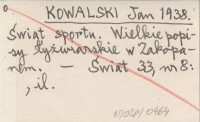 KOWALSKI Jan 1938.
Świat sportu. Wielkie popi-
sy łyżwiarskie w Zakopa-
nem. — Świat 33, nr 8:
, il.